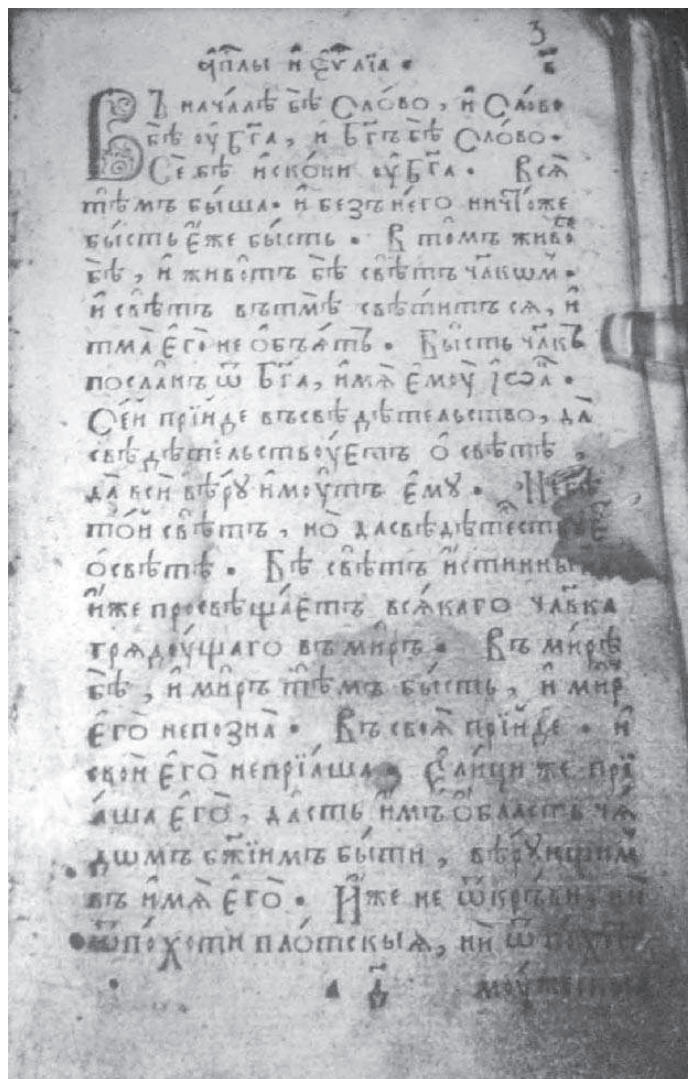 З
а҆пⷭ҇лы и҆ єѵⷢ҇лїа .
в҃
Въ нача́лѣ бѣ̀ Сло́во , и҆ Сло́во
бѣ̀ оу҆ Бг҃а , и҆ Бг҃ъ бѣ̀ Сло́во .
Се́ бѣ и҆скони оу҆ Бг҃а . Всѧ̀
тѣ́мъ бы́ша . и҆ безъ не́го ничто́же
бы́сть є҆́же бысть . В то́мъ живо́
бѣ̀ , и҆ живо́тъ бѣ̀ свѣ́тъ чл҃кѡм .
и҆ свѣтъ вътмѣ̀ свѣ́титъ сѧ , и҆
тма̀ є҆го̀ не ѡ҆бъѧ́тъ . Бы́сть чл҃къ
посла́нъ ѿ Бг҃а , и҆мѧ̀ є҆моу̀ і҆ѡа҃ .
Се́й прїи́де въсвѣдѣ́тельство , да̀
свѣдѣ́тельствоу́етъ о҆ свѣ́тѣ ,
да̀ вси̂ вѣ́рꙋ и҆моу́тъ є҆мꙋ̀ . Небѣ̀
то́й свѣ́тъ , но̀ дасвѣдѣ́тест
о҆свѣ́тѣ . Бѣ̀ свѣ́тъ и҆́стинны
и҆́же просвѣща́етъ всѧ́каго чл҃вка
грѧдоу́щаго въ ми́ръ . Въ ми́рѣ
бѣ̀ , и҆ ми́ръ тѣ́мъ бы́сть , и҆ ми́р
є҆го̀ непозна̀ . Въ своѧ̀ прїи́де . и҆
свои̂ є҆го̀ непрїѧ́ша . Є҆ли́ци же прї
ѧ́ша є҆го̀ , да́сть и҆́мъ ѻ҆́бласть чѧ́
дѡмъ бж҃їимъ бы́ти , вѣ́рꙋющим
въ и҆мѧ̀ є҆го̀ . И҆́же не ѿ кръ́ви , ни
ѿ по́хоти пло́тскыѧ , ни ѿ по́хти
а д҃ моу́жескыѧ